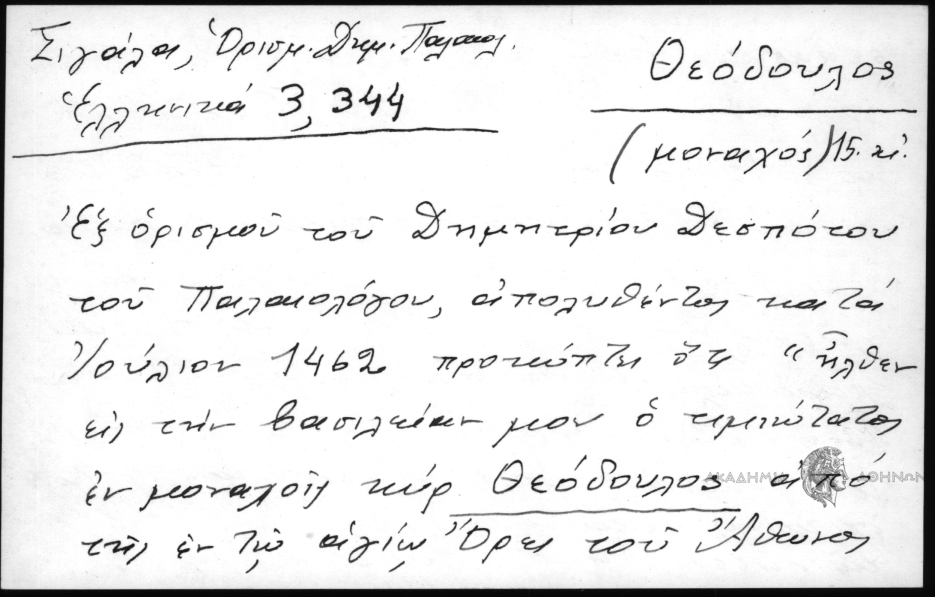 Σιγάλα, Ὁρισμ. Δημ. Παλαιολ.
Ἑλληνικά 3, 344
Θεόδουλος
(μοναχός) 15. αἰ.
Ἐξ ὁρισμοῦ τοῦ Δημητρίου Δεσπότου
τοῦ Παλαιολόγου, ἀπολυθέντος κατά
Ἰούλιον 1462 προκύπτει ὅτι "ἦλθεν
εἰς τήν βασιλείαν μου ὁ τιμιώτατος
ἐν μοναχοῖς κύρ Θεόδουλος ἀπό
τῆς ἐν τῷ ἁγίῳ Ὄρει τοῦ Ἄθωνος
ΑΚΑΔΗΜΙΑ ΑΘΗΝΩΝ